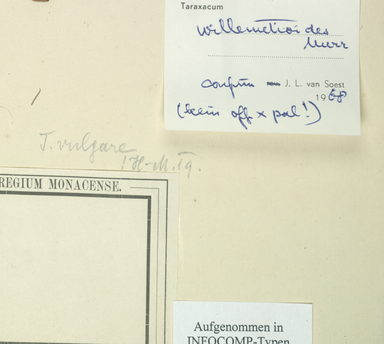 Taraxacum
willemetioides
Murr
confirm J. L. van Soest
1968
(kein off x pal!)
T. vulgare
! H-M. 19.
REGIUM MONACENSE.
Aufgenommen in
INFOCOMP-Typen